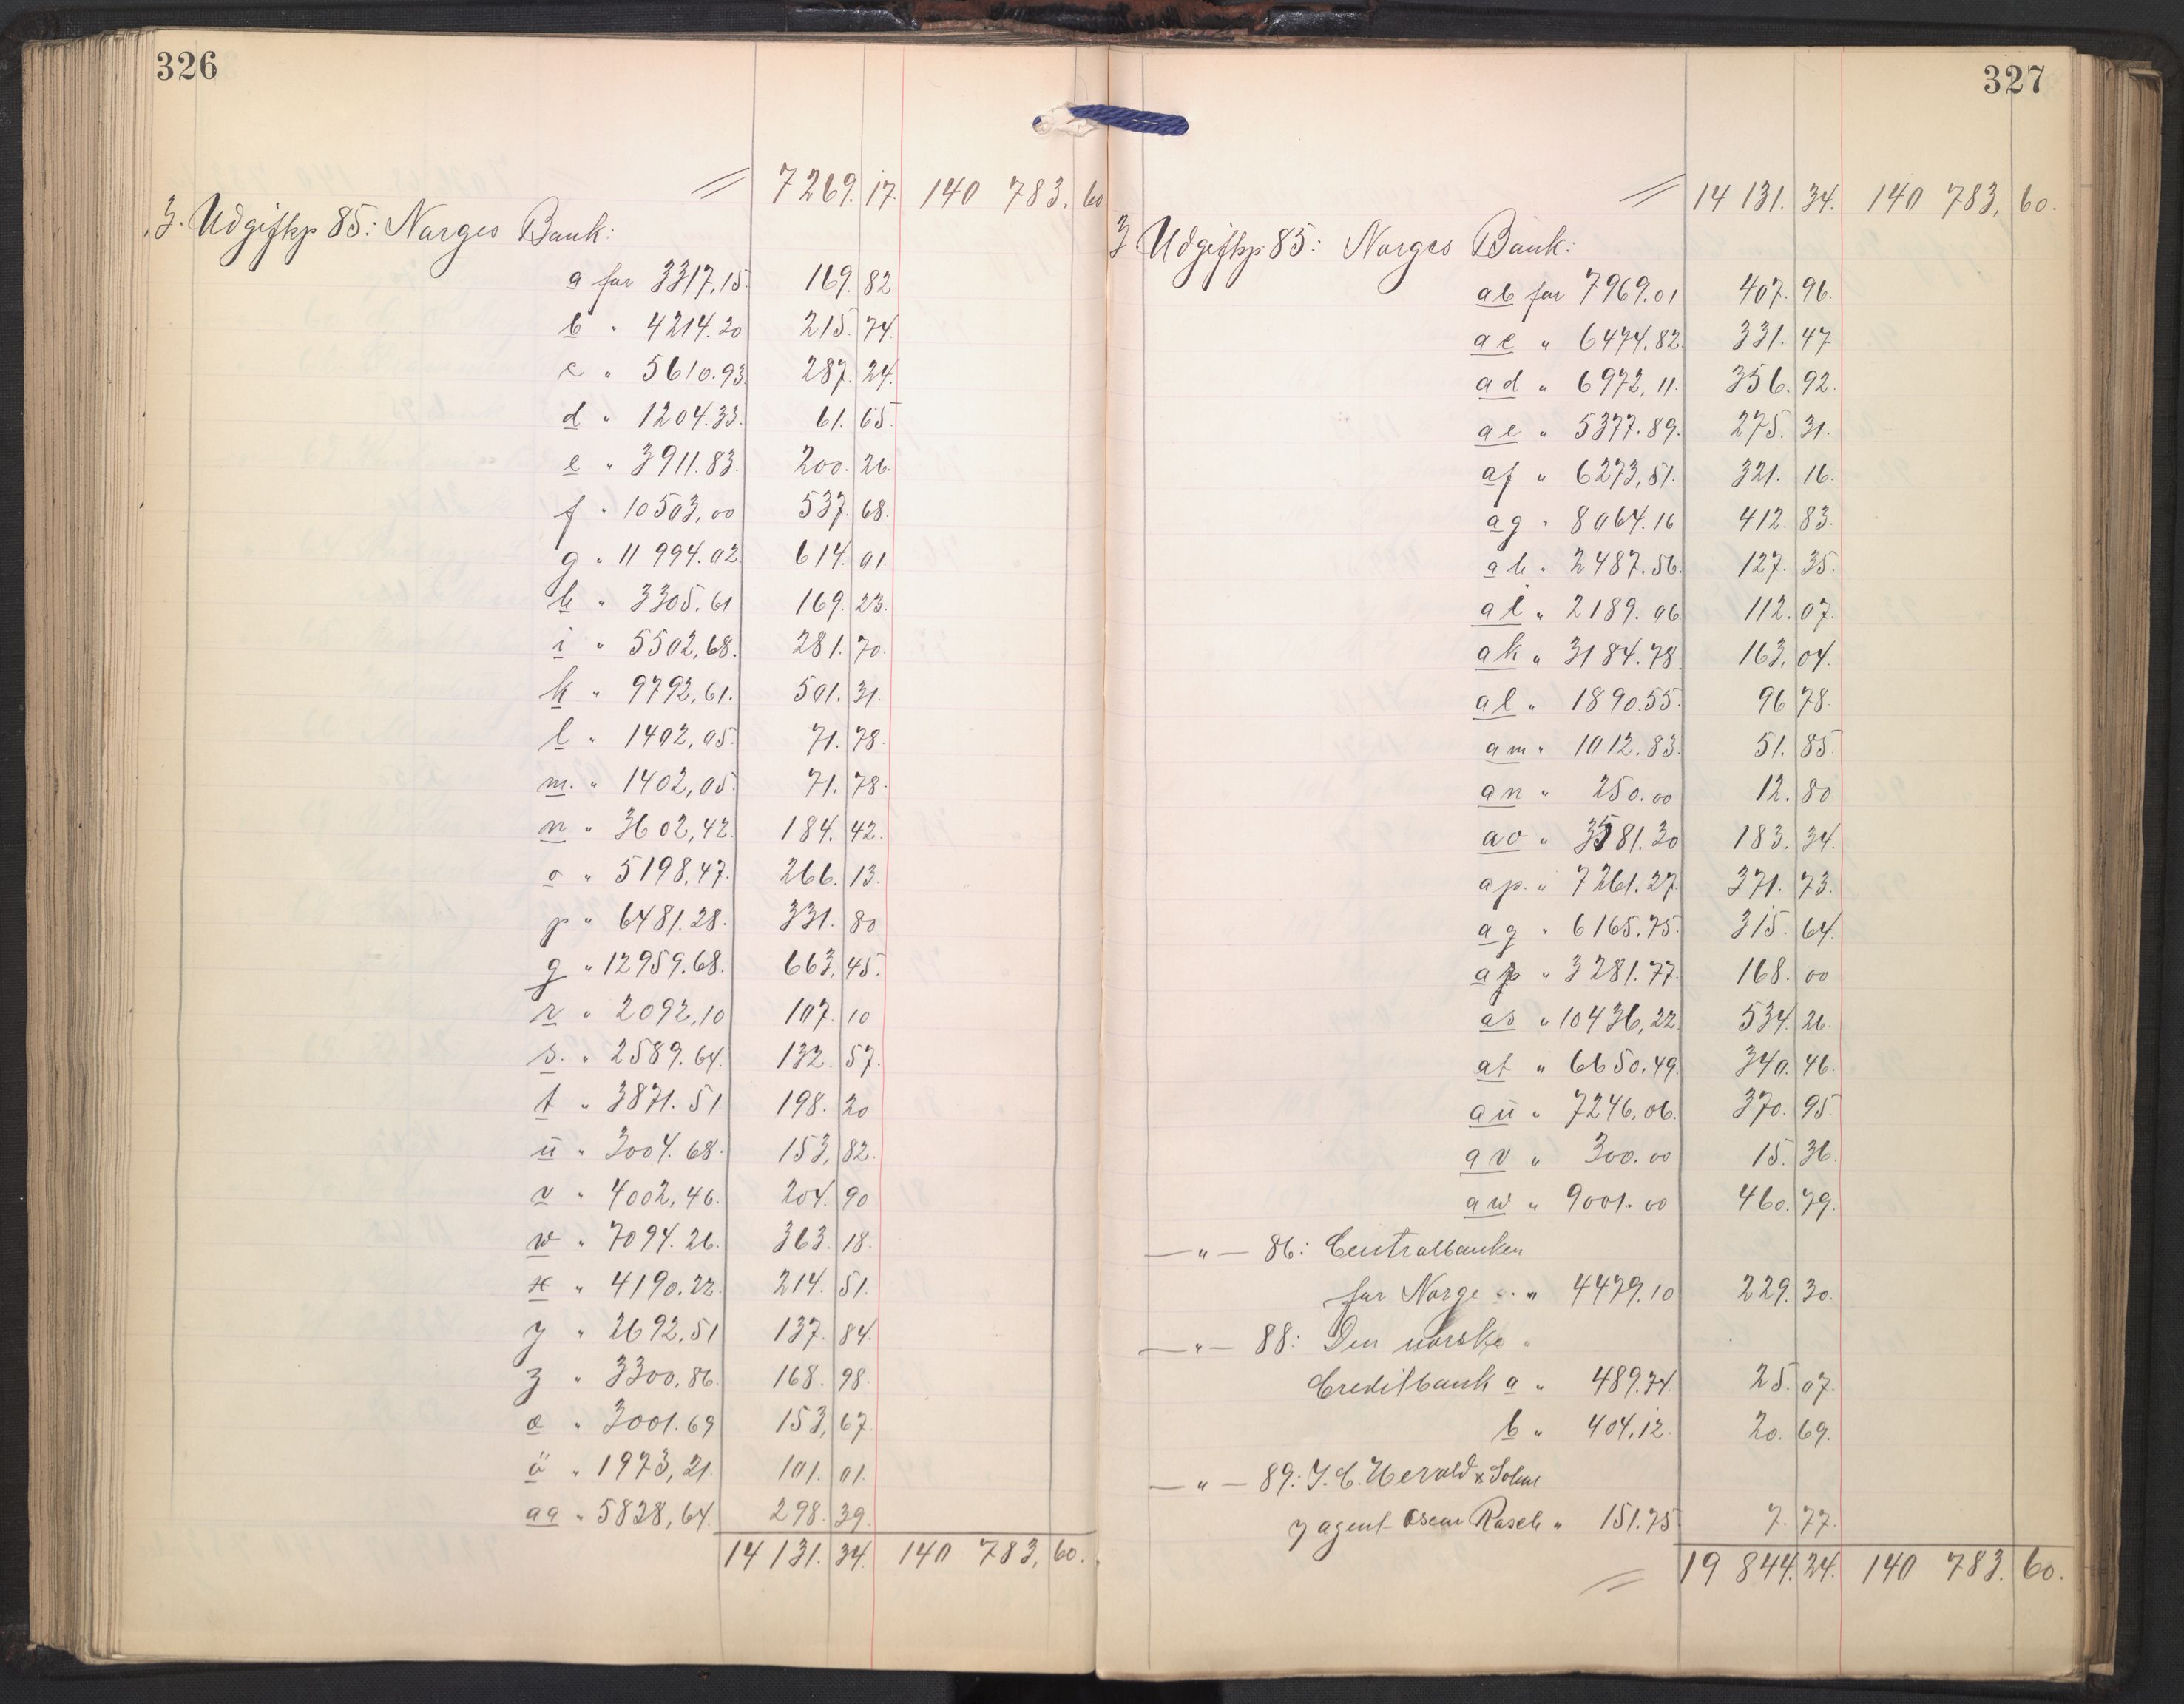 326
7269. 17. 140 783. 60
3. Udgiftsp 85: Norges Bank:
a for 3317,15. 169. 82
b " 4214.20 215. 74.
c " 5610.93. 287. 24.
d " 1204.33. 61. 65.
e " 3911.83. 200. 26.
f " 10503,00 537. 68.
g " 11 994.02. 614. 01.
h " 3305.61 169. 23.
i " 5502,68. 281. 70.
k " 9792,61. 501. 31.
l " 1402,05. 71. 78.
m. " 1402,05. 71. 78.
n " 3602,42. 184. 42.
o " 5198,47. 266. 13.
p " 6481.28. 331. 80
q " 12959.68. 663, 45.
r " 2092,10 107. 10
s. " 2589.64. 132. 57.
t " 3871.51 198. 20
ü " 3004.68. 153, 82.
v " 4002,46. 204. 90
w " 7094.26. 363. 18.
x " 4190.22. 214. 51.
y " 2692,51 137. 84.
z " 3300,86. 168. 98.
æ " 3001.69 153, 67.
ö " 1973,21. 101. 01.
aa " 5828,64. 298. 39.
14 131. 34. 140 783, 60.
327
14 131. 34. 140 783, 60.
3 Udgiftsp 85: Norges Bank:
ab for 7969.01 407. 96.
ac " 6474.82. 331. 47
ad " 6972,11. 356. 92.
ae " 5377.89. 275. 31.
af " 6273,51. 321. 16.
ag " 8064.16 412. 83.
ah " 2487.56. 127. 35.
ai " 2189.06. 112. 07.
ak " 3184.78. 163, 04.
al " 1890.55. 96 78.
am " 1012.83. 51. 85.
an " 250.00 12. 80
ao " 3581.30 183. 34.
ap. " 7261.27. 371. 73.
aq " 6165.75. 315. 64.
ar " 3281.77. 168. 00
as " 10436,22. 534. 26.
at " 6650.49. 340. 46.
aü " 7246,06. 370. 95.
av " 300.00 15. 36.
aw " 9001.00 460. 79.
— " — 86: Centralbanken
for Norge " 4479,10 229. 30.
— " — 88: Den norske
Creditbank a " 489.74. 25. 07.
b " 404,12. 20. 69.
— " — 89: J. C. Herold & Sohne
agent Oscar Rasch " 151.75. 7. 77.
19 844. 24. 140 783. 60.